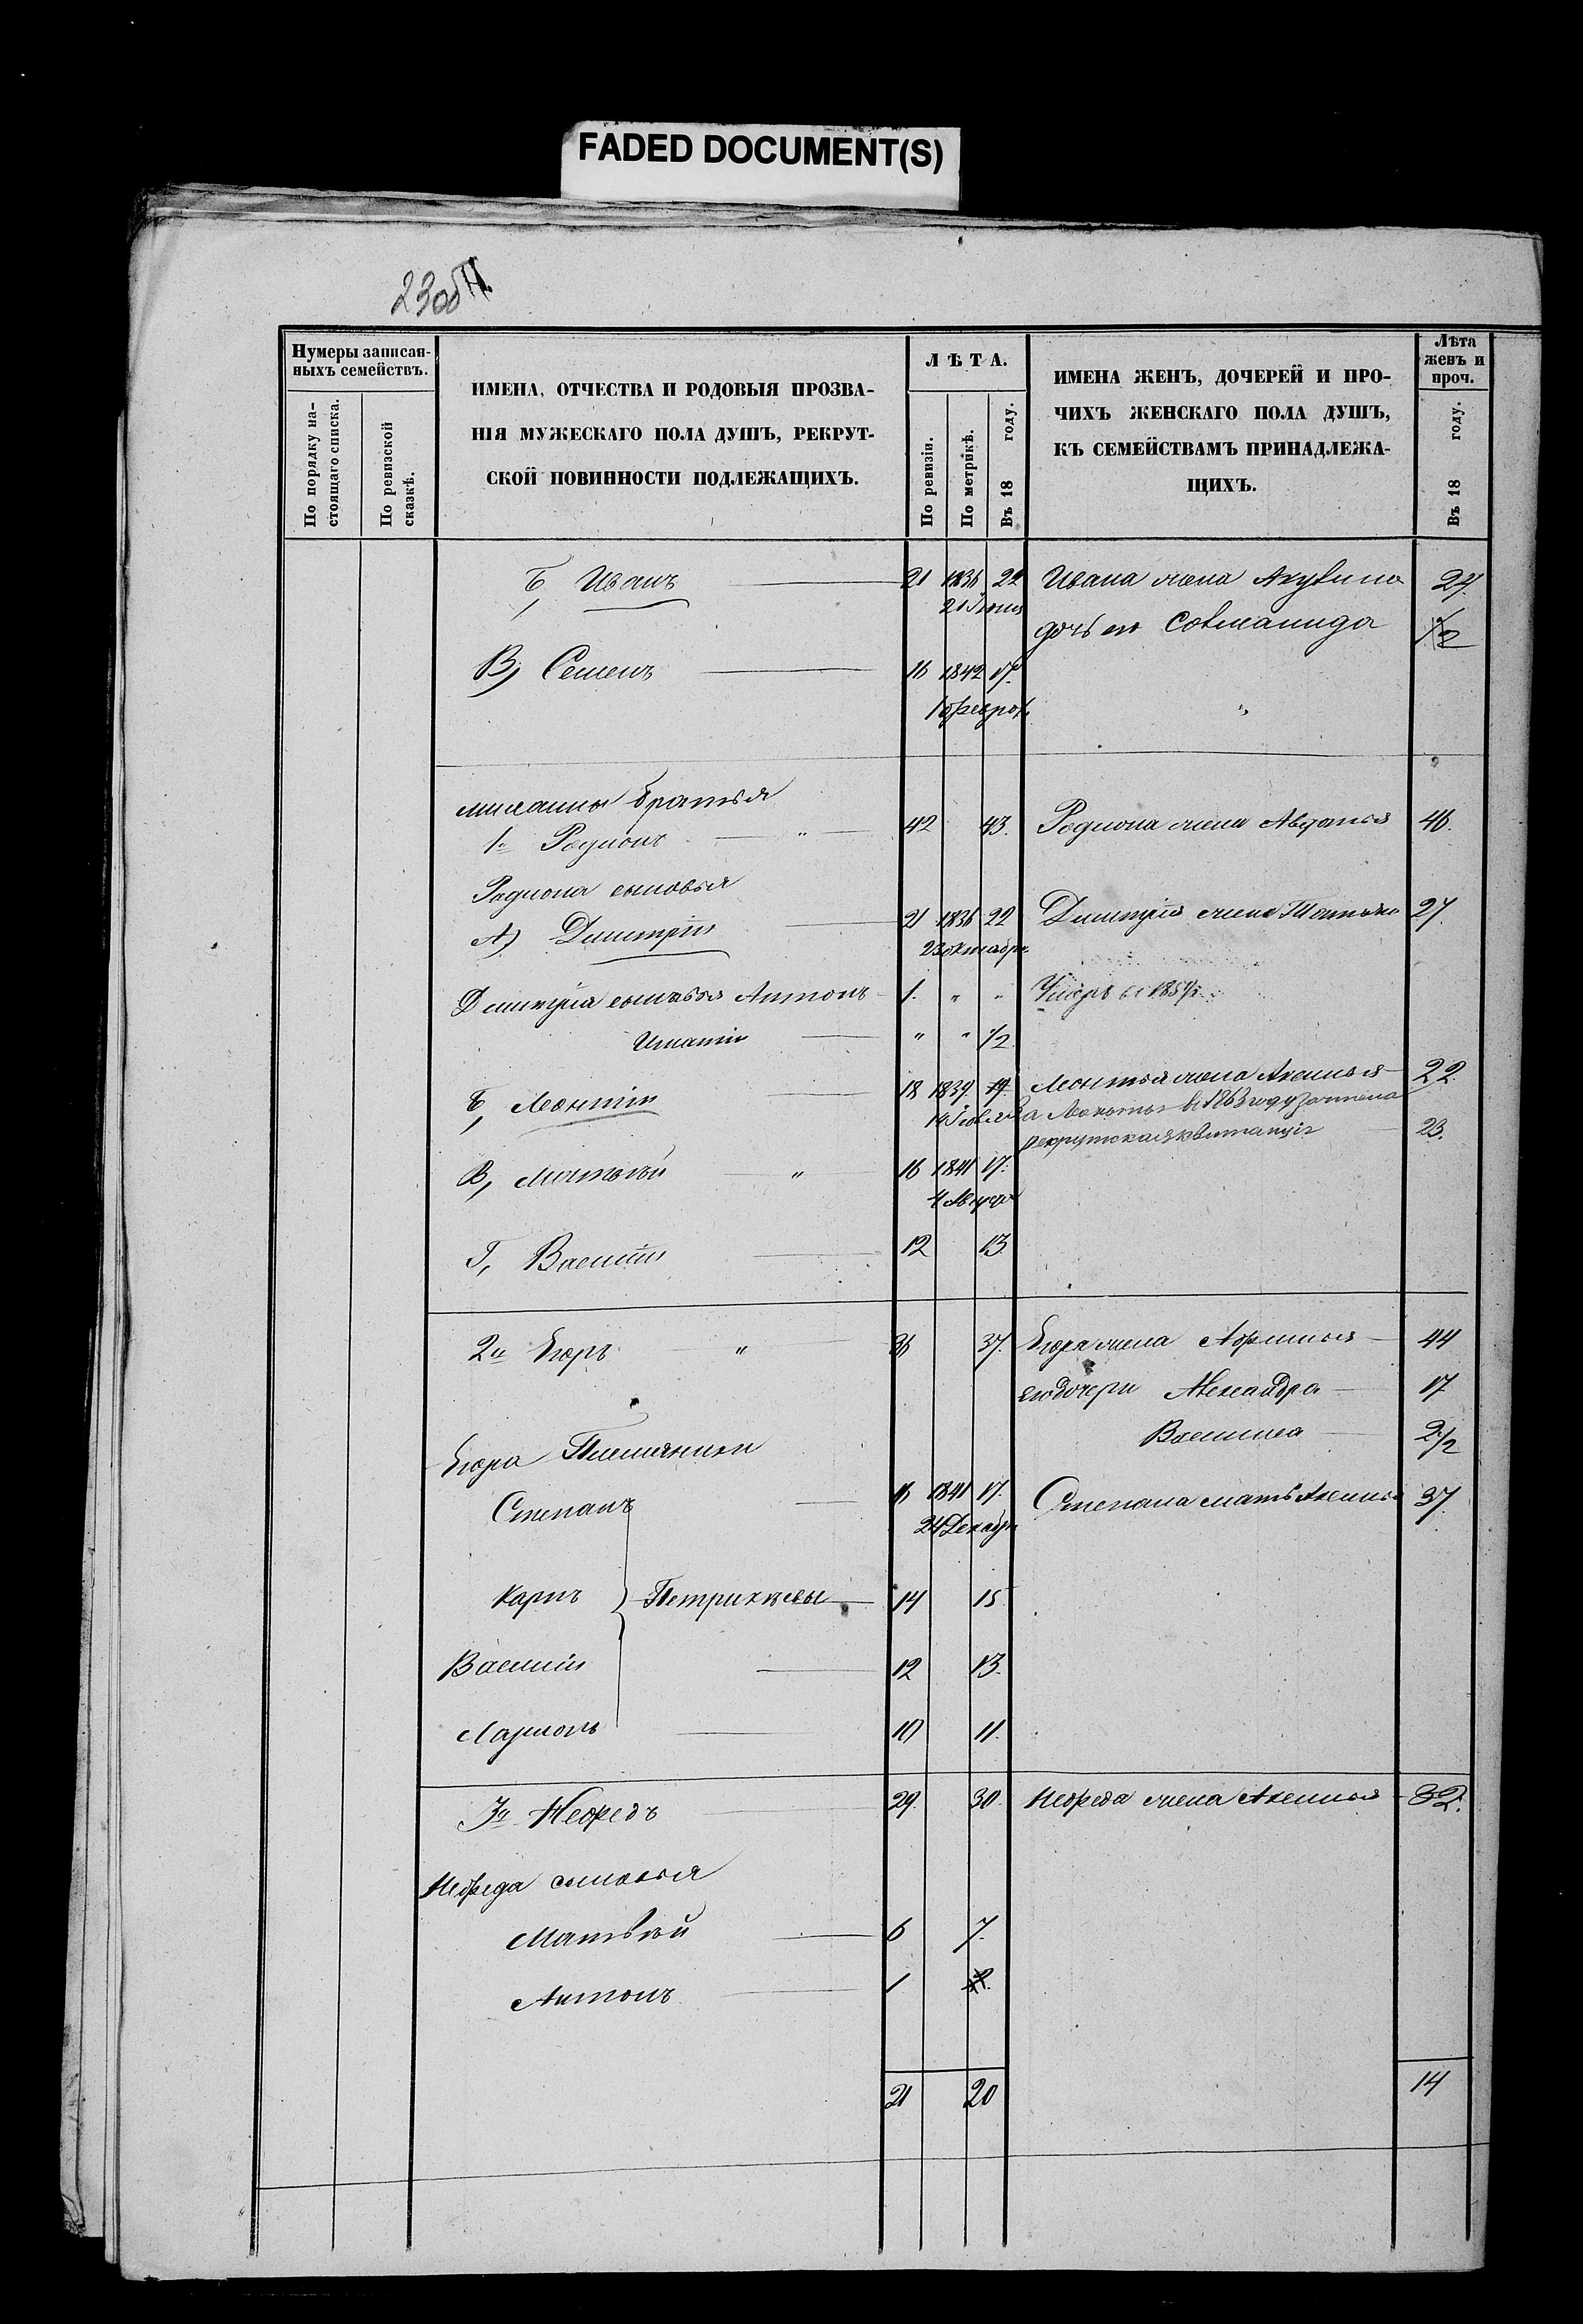 FADED DOCUMENT(S)
23об
Нумеры записан-
ныхъ семействъ.
По порядку на-
стоящаго списка.
По ревизской
сказкѣ.
ИМЕНА, ОТЧЕСТВА И РОДОВЫЯ ПРОЗВА-
НІЯ МУЖЕСКАГО ПОЛА ДУШЪ, РЕКРУТ-
СКОЙ ПОВИННОСТИ ПОДЛЕЖАЩИХЪ.
ЛѢТА.
По ревизіи.
По метрикѣ.
Въ 18 году.
ИМЕНА ЖЕНЪ, ДОЧЕРЕЙ И ПРО-
ЧИХЪ ЖЕНСКАГО ПОЛА ДУШЪ,
КЪ СЕМЕЙСТВАМЪ ПРИНАДЛЕЖА-
ЩИХЪ.
Лѣта
женъ и
проч.
Въ 18 году.
Б, Иванъ 21 1836 22 Ивана жена Акулина 27.
21 Іюня
дочь ея 1/2
В, Семенъ 16 1842 17.
"
братья
1й Родіонъ " 42 43. Родиона жена Авдотья 46.
Родиона сыновья
А) Димитрій 21 1836 22 Димитрія жена Татьяна 27.
23 октября
Димитрія сыновья Антонъ 1. " " Умеръ въ 185
Игнатій " " 1/2
Б, Леонтій 18 1839 19 Леонтья жена Аксинья 22.
за Леонтья въ 1863 году зачтена
рекрутская квитанція 23.
В, Матвѣй " 16 1841 17.
4 Августа
Г, Василій 12 13
2й Егоръ " 36 37. Егора жена Афимья 44
его дочери Александра 17
Василиса 2 1/2
Егора Племянники
Степанъ 16 1841 17. Степана мать Аксинья 37.
24 Декабря
Карпъ 14 15
Василій 12 13.
Ларіонъ 10 11.
3й Нефедъ 29. 30. Нефеда жена Аксинья 32.
Нефеда сыновья
Матвѣй 6 7.
Антонъ 1 2.
21 20 14